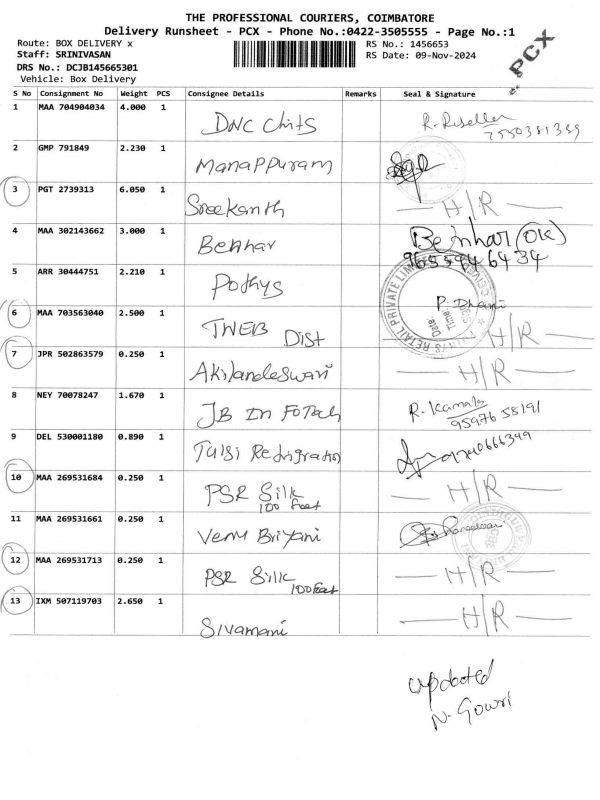 THE PROFESSIONAL COURIERS, COIMBATORE
Delivery Runsheet - PCX - Phone No.:0422-3505555 - Page No.:1
Route: BOX DELIVERY x
Staff: SRINIVASAN
DRS No.: DCJB145665301
Vehicle: Box Delivery
RS No.: 1456653
RS Date: 09-Nov-2024
PCX
S No Consignment No Weight PCS Consignee Details Remarks Seal & Signature
1 MAA 704904034 4.000 1 DNC Chits R. Reseller
7550381369
2 GMP 791849 2.230 1 Manappuram
3 PGT 2739313 6.050 1 Sreekanth H/R
4 MAA 302143662 3.000 1 Behhar Beinhar (OK)
9655946434
5 ARR 30444751 2.210 1 Pothys P. Dhani
6 MAA 703563040 2.500 1 TWEB Dist H/R
7 JPR 502863579 0.250 1 Akilandeswari H/R
8 NEY 70078247 1.670 1 JB InFoTech R. Kamala
95976 58191
9 DEL 530001180 0.890 1 Tulsi 9740666349
10 MAA 269531684 0.250 1 PSR Silk
100 Feet H/R
11 MAA 269531661 0.250 1 Venu Briyani
12 MAA 269531713 0.250 1 PSR Silk
100 Feet H/R
13 IXM 507119703 2.650 1 Sivamani H/R
updated
N. Gowri